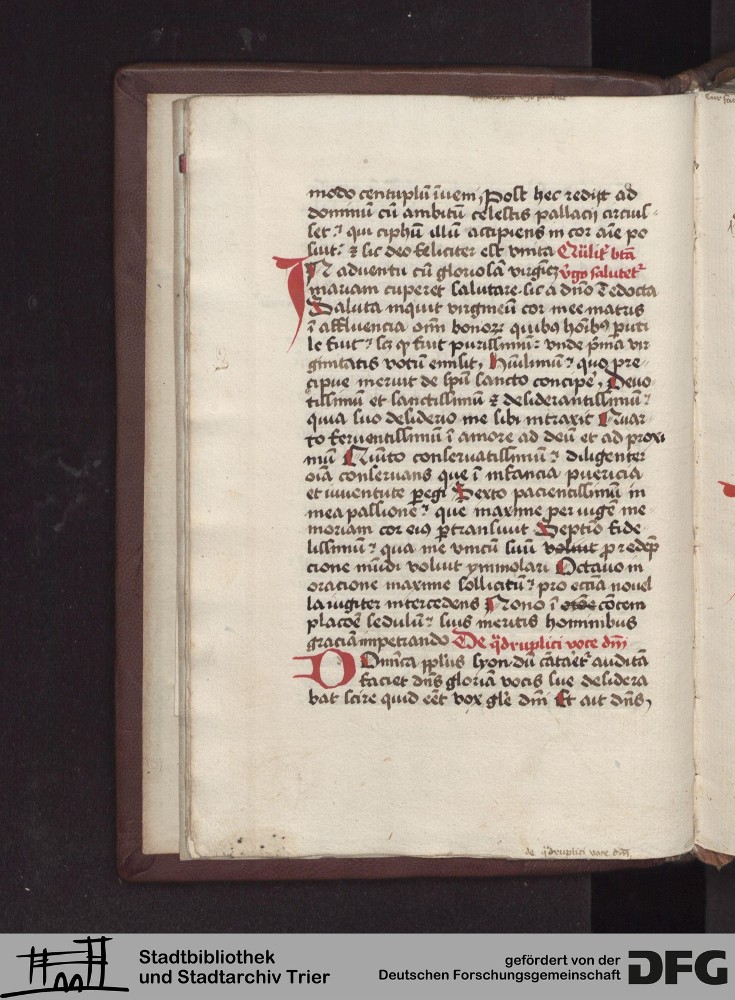 modo centuplū īuem, Post hec redijt ad
dominū cū ambitū celestis pallacij circuis-
set ⁊ qui ciphū illū accipiens in cor aīe po
suit: ⁊ sic deo feliciter est vnita
IN aduentu cū gloriosā virginē v̄go salutet᷑
mariam cuperet salutare sic a dn̄o Edocta
Saluta inquit virgineū cor mee matris
ī affluencia omī bonorꝝ quibꝰ hoībꝰ ꝑuti
le fuit ⁊ scꝫ qꝫ fuit purissimū: vnde pͥma vir
ginitatis votū emisit, humilimū ⁊ quo pre-
cipue meruit de spū sancto concipe᷑, Deuo
tissimū et sanctissimū ⁊ desiderantissimū ⁊
quia suo desiderio me sibi intraxit Quar
to feruentissimū ī amore ad deū et ad proxi
mū Quīto conseruatissimū ⁊ diligenter
oīa conseruans que ī infancia puericia
et iuuentute ꝑegi Sexto pacientissimū in
mea passione ⁊ que maxime per iuge me
moriam cor eiꝰ ꝑtransiuit Septīo fide
lissimū ⁊ qua me vnicū suū voluit ꝓ redēp
cione mūdi voluit ymmolari Octauo in
oracione maxime sollicitū ⁊ pro ecc̄ia nouel
la iugiter intercedens Nono ī cōtem
placōe sedulū ⁊ suis meritis hominibus
graciā impetrando De qͣdruplici voce dm̄
Domīca pp̄lus syon dū cātaret᷑ auditā
faciet dn̄s gloriā vocis sue desidera
bat scire quid eēt vox gl̄e dm̄ Et ait dn̄s,
de qͣdruplici voce dm̄
Stadtbibliothek
und Stadtarchiv Trier
gefördert von der
Deutschen Forschungsgemeinschaft
DFG